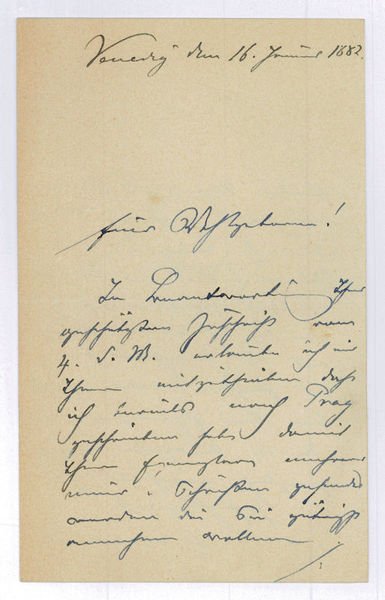 Venedig den 16. Januar 1882.
Euer Wohlgeboren!
In Beantwortung Ihrer
geschätzten Zuschrift vom
4. d. M. erlaube ich mir
Ihnen mitzutheilen daß
ich bereits nach Prag
geschrieben habe damit
Ihnen Exemplare mehrerer
meiner Schriften gesendet
werden die Sie gütigst
annehmen wollen.